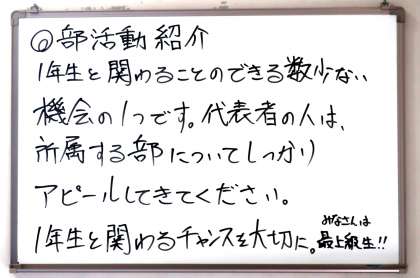 ◎部活動紹介
1年生と関わることのできる数少ない
機会の1つです。代表者の人は、
所属する部についてしっかり
アピールしてきてください。
1年生と関わるチャンスを大切に。
みなさんは
最上級生!!